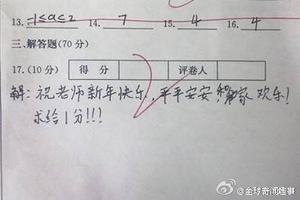 13. -1≤a≤2 14. 7 15. 4 16. 4
三.解答题(70分)
17.(10分) 得 分 评卷人
解:祝老师新年快乐,平平安安,阖家欢乐!
求给1分!!!
@全球新闻趣事